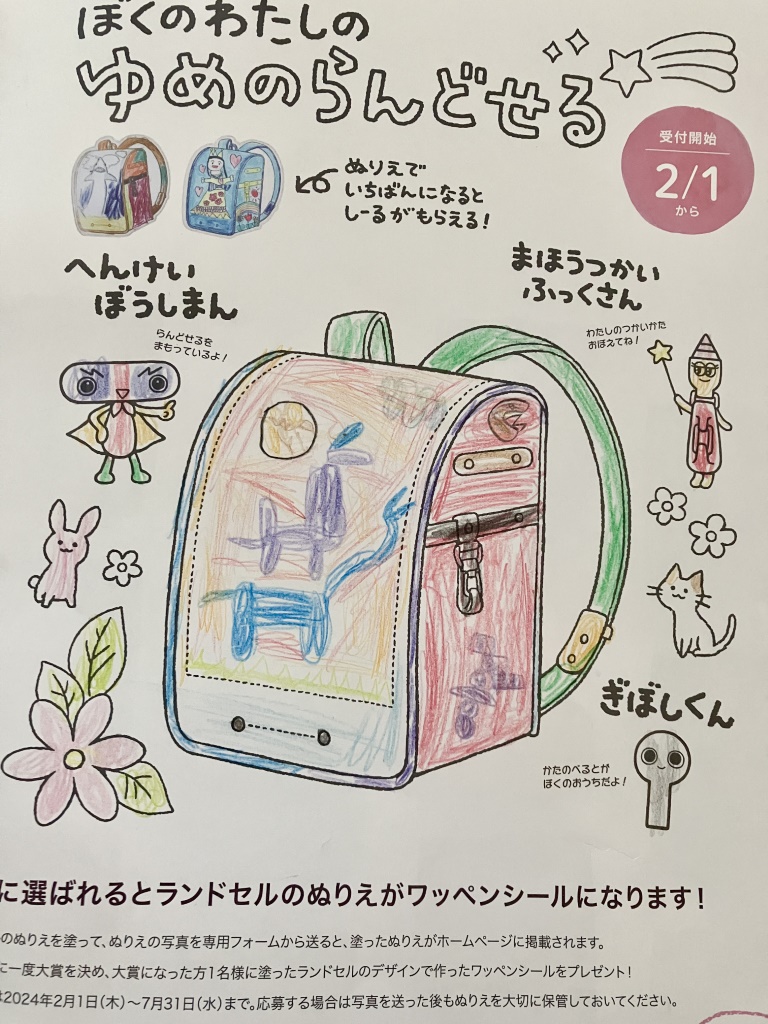 ぼくのわたしの
ゆめのらんどせる
受付開始
2/1
から
ぬりえで
いちばんになると
しーるがもらえる!
へんけい
ぼうしまん
らんどせるを
まもっているよ!
まほうつかい
ふっくさん
わたしのつかいかた
おぼえてね!
ぎぼしくん
かたのべるとが
ぼくのおうちだよ!
に選ばれるとランドセルのぬりえがワッペンシールになります!
のぬりえを塗って、ぬりえの写真を専用フォームから送ると、塗ったぬりえがホームページに掲載されます。
に一度大賞を決め、大賞になった方1名様に塗ったランドセルのデザインで作ったワッペンシールをプレゼント!
は2024年2月1日(木)～7月31日(水)まで。応募する場合は写真を送った後もぬりえを大切に保管しておいてください。